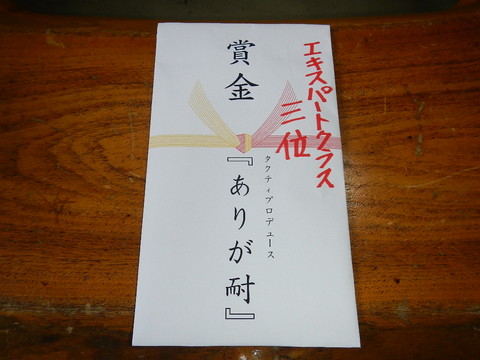 エキスパートクラス
三位
賞金
タクティプロデュース
『ありが耐』